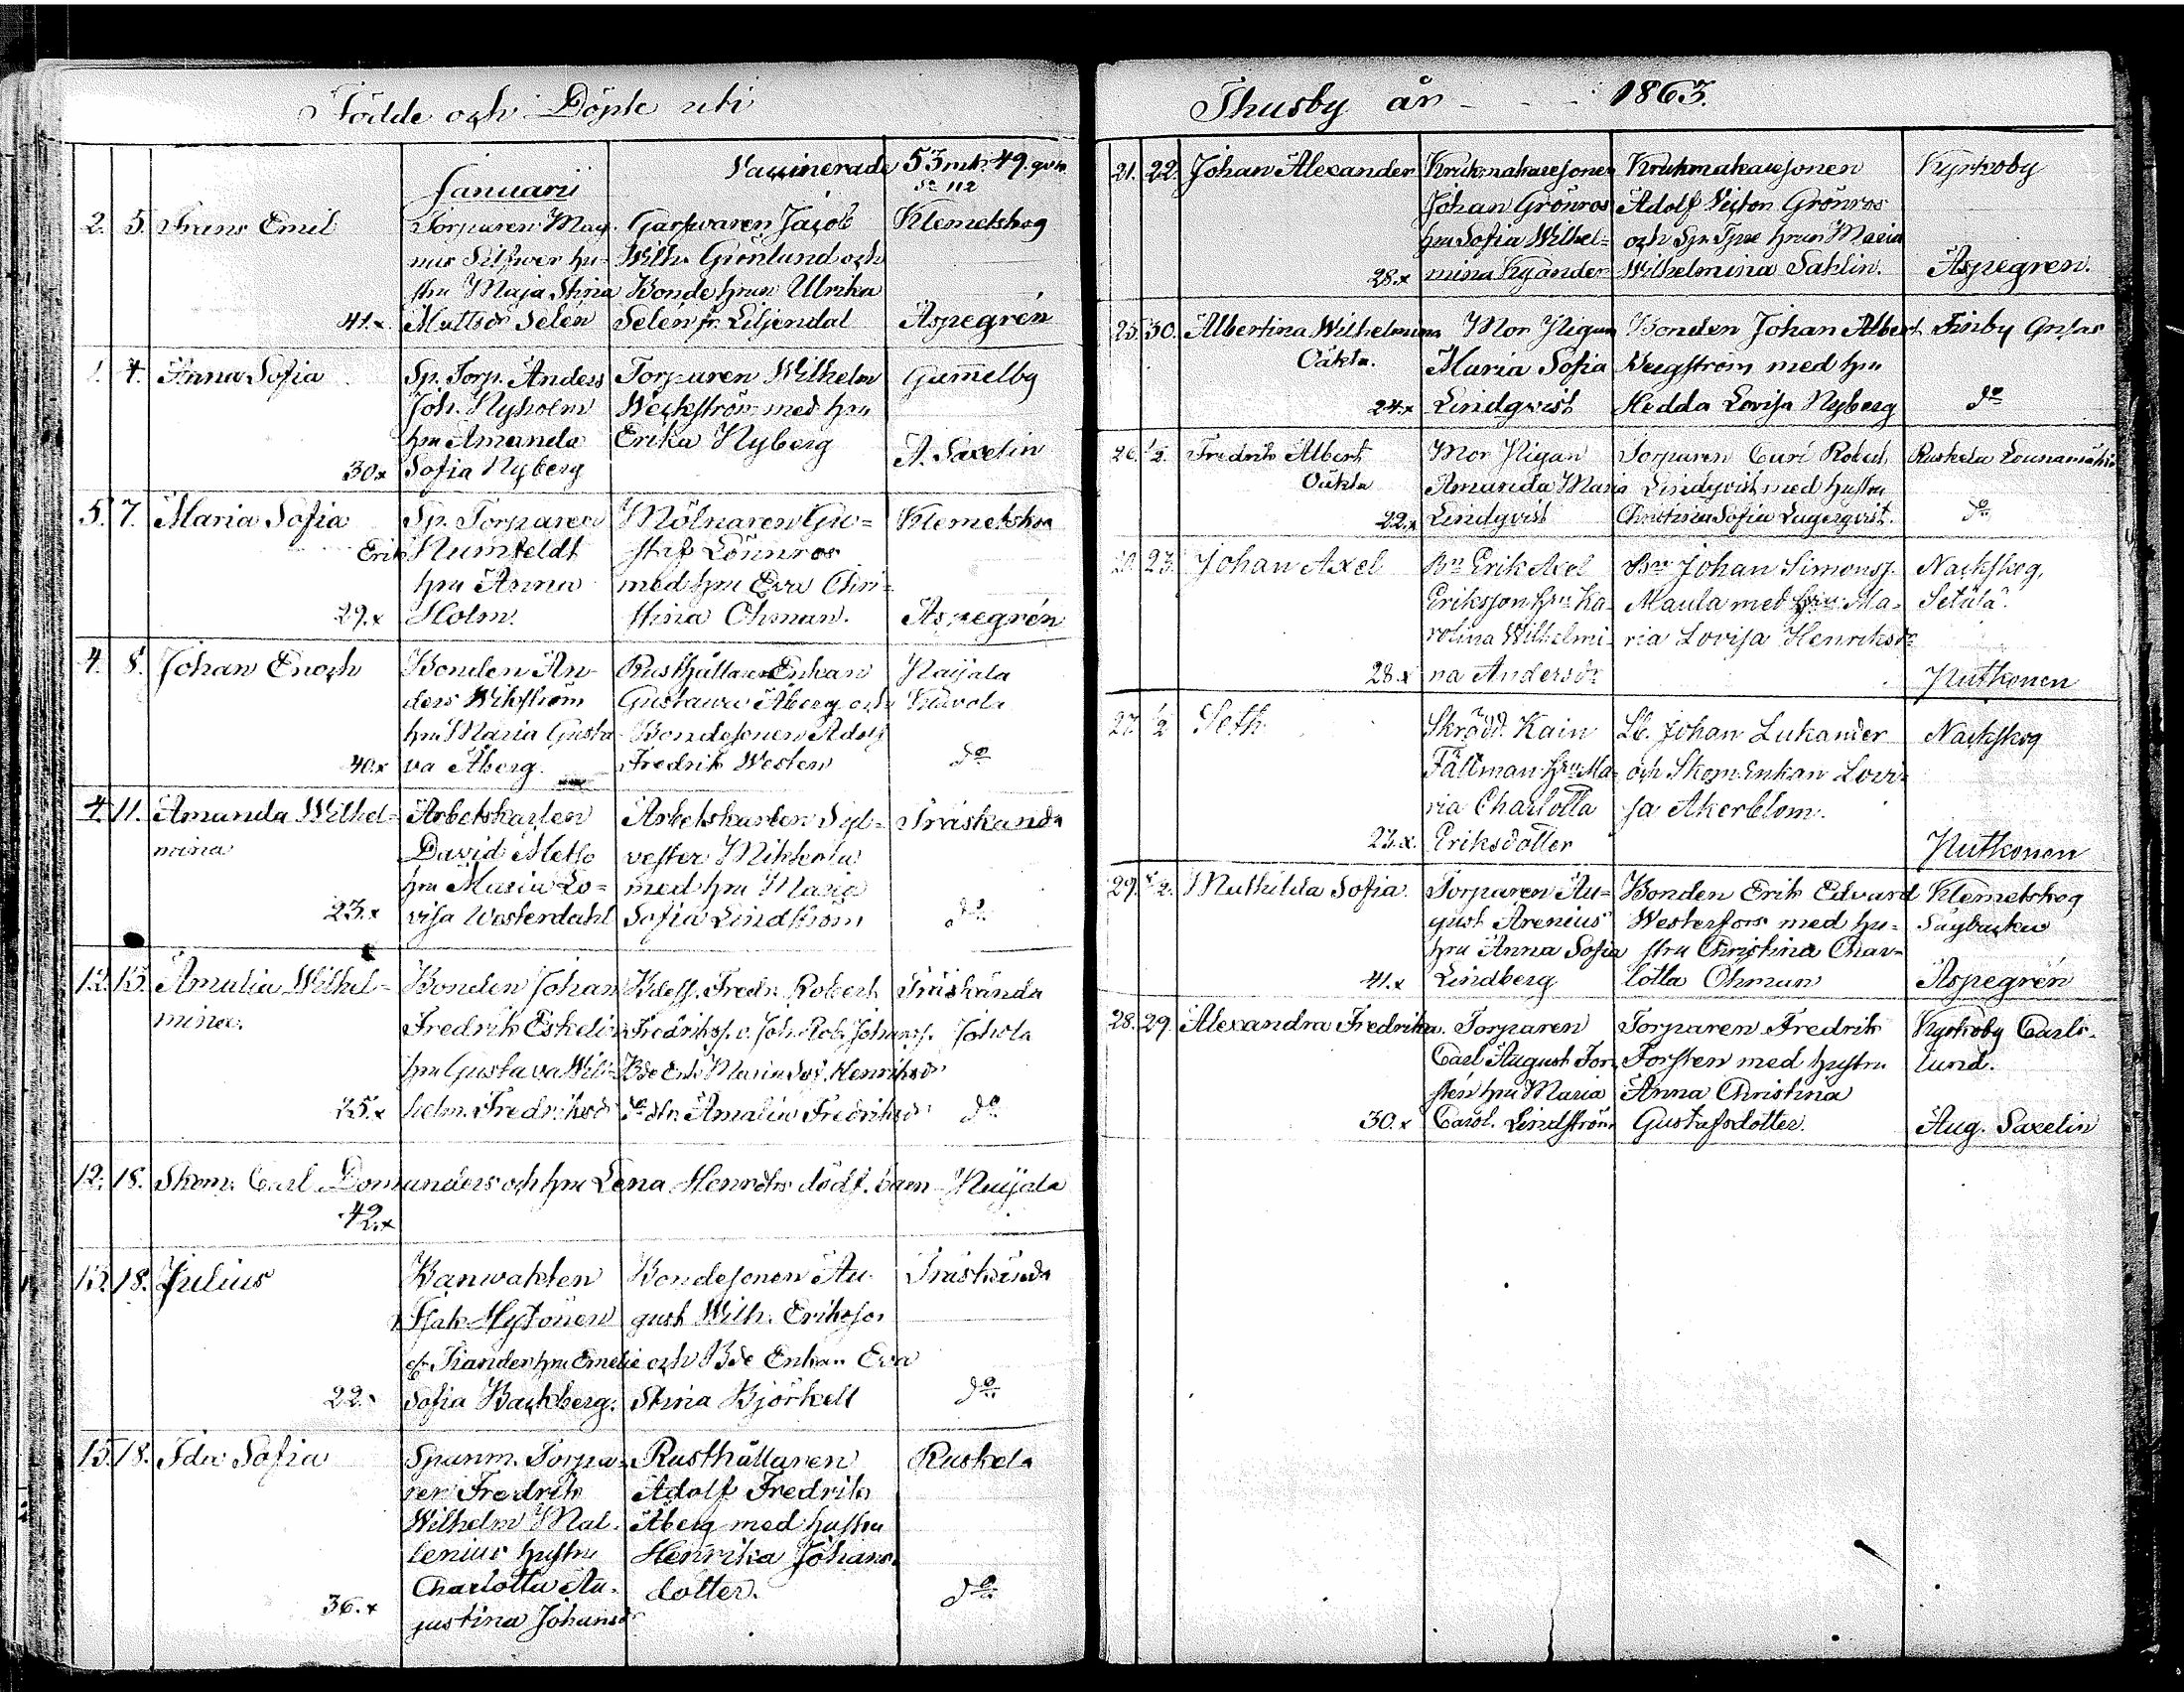 Födde och Döpte uti
Januarii
Vaccinerade 53 mk. 49. qvk
Sa 112
2. 5. Frans Emil
Torparen Mag-
nus Silfwer hu-
stru Maja Stina
41.x Mattsdr Selén
Garfvaren Jacob
Wilh. Grönlund och
Bonde hrun Ulrika
Selén fr. Liljendal
Klemetskog
Aspegrén
1. 4. Anna Sofia
Sp. Torp. Anders
Joh. Nyholm
hru Amanda
30x Sofia Nyberg
Torparen Wilhelm
Weckström med hru
Erika Nyberg
Gammelby
A. Saxelin
5. 7. Maria Sofia
Sp. Torparen
Erik Rumfeldt
hru Anna
29.x Holm.
Mölnaren Gu=
staf Lönnros
med hru Eva Chri-
stina Öhman.
Klemetskog
Aspegrén
4. 8. Johan Enoch
Bonden An-
ders Wikström
hru Maria Gusta-
40.x va Åberg.
Rusthållare Enkan
Gustawa Åberg och
Bondesonen Adolf
Fredrik Westen
Paijala
do
4. 11. Amanda Wilhel=
mina
Arbetskarlen
David Metso
hru Maria Lo=
23.x visa Westerdahl
Arbetskarlen Syl=
vester Mikkola
med hru Maria
Sofia Lindström
Träskända
do
12. 13. Amalia Wilhel-
mina.
Bonden Johan
Fredrik Eskelin
hru Gustava Wil-
25.x helm. Fredriksdr
Bdess. Fredr. Robert
Fredrikss. o. Joh. Rob. Johanss.
Bde Enk. Maria Lov. Henriksdr
Amalia Fredriksdr
Träskända
Johola
do
12. 18. Skom. Carl Domanders och hru Lena Henrdrs dödf. barn Paijala
42.x
13. 18. Julius
Banwakten
Isak Hytönen
ef. Tiander hru Emelie
22.x Sofia Backberg.
Bondesonen Au-
gust Wilh. Eriksson
och Bde Enkan Eva
Stina Björkell
Träskända
do
15. 18. Ida Sofia
Spanm. Torpa-
ren Fredrik
Wilhelm Mal-
lenius hustru
Charlotta Au-
36.x gustina Johansdr
Rusthållaren
Adolf Fredrik
Åberg med hustru
Henrika Johans-
dotter.
Ruskela
do
Thusby år - - - 1863.
21. 22. Johan Alexander
Krukmakaresonen
Johan Grönros
hru Sofia Wilhel=
28.x mina Kyander
Krukmakaresonen
Adolf Victor Grönros
och Sp. Tpre hrun Maria
Wilhelmina Sahlin.
Kyrkoby
Aspegren.
25. 30. Albertina Wilhelmina
Oäkta.
Mor Pigan
Maria Sofia
24.x Lindqvist
Bonden Johan Albert
Bergström med hru
Hedda Lovisa Nyberg
Finby Gnsas
do
26. 1/2. Fredrik Albert
Oäkta
Mor Pigan
Amanda Maria
22.x Lindqvist
Torparen Carl Robert
Lindqvist med hustru
Christina Sofia Lagerqvist.
Ruskela Lounamäki
do
20. 23. Johan Axel
Bn Erik Axel
Eriksson hru Ka-
rolina Wilhelmi-
28.x na Andersdr
Bn Johan Simonss.
Maula med hru Ma-
ria Lovisa Henriksdr
Nackskog,
Setälä.
Nutkonen
27. 1/2 Seth
Skrädd. Kain
Fältman hru Ma-
ria Charlotta
23.x. Eriksdotter
Lb. Johan Lukander
och Skom. Enkan Lovi-
sa Åkerblom.
Nackskog
Nutkonen
29. /2. Mathilda Sofia.
Torparen Au=
gust Arenius
hru Anna Sofia
41.x Lindberg
Bonden Erik Edvard
Westerfors med hu-
stru Christina Char-
lotta Öhman
Klemetskog
Sågbacka
Aspegrén
28. 29. Alexandra Fredrika.
Torparen
Carl August For-
stén hru Maria
30.x Carol. Lindström
Torparen Fredrik
Forsten med hustru
Anna Christina
Gustafsdotter.
Kyrkoby Carls-
lund.
Aug. Saxelin